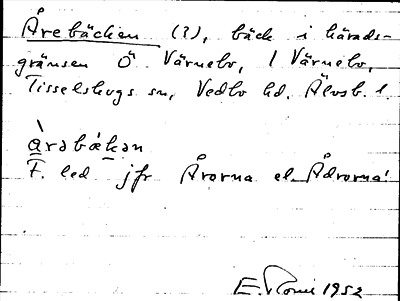 Årebäcken (?), bäck i härads-
gränsen Ö Värnebo, 1 Värnebo,
Tisselskogs sn, Vedbo hd. Älvsb. l.
àrəbǽkən
F. led jfr Årorna el. Ådrorna!
E. 1952